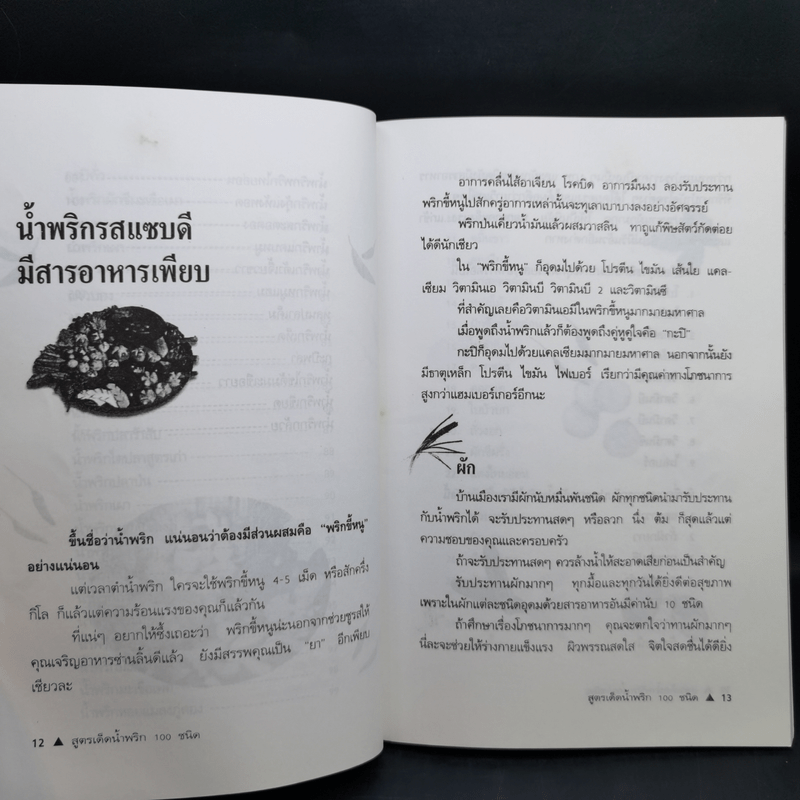 น้ำพริกรสแซบดี
มีสารอาหารเพียบ
ขึ้นชื่อว่าน้ำพริก แน่นอนว่าต้องมีส่วนผสมคือ "พริกขี้หนู"
อย่างแน่นอน
แต่เวลาตำน้ำพริก ใครจะใช้พริกขี้หนู 4-5 เม็ด หรือสักครึ่ง
กิโล ก็แล้วแต่ความร้อนแรงของคุณก็แล้วกัน
ที่แน่ๆ อยากให้ซึ้งเถอะว่า พริกขี้หนูน่ะนอกจากช่วยชูรสให้
คุณเจริญอาหารซ่านลิ้นดีแล้ว ยังมีสรรพคุณเป็น "ยา" อีกเพียบ
เชียวละ
12 ▲ สูตรเด็ดน้ำพริก 100 ชนิด
อาการคลื่นไส้อาเจียน โรคบิด อาการมึนงง ลองรับประทาน
พริกขี้หนูไปสักครู่อาการเหล่านั้นจะทุเลาเบาบางลงอย่างอัศจรรย์
พริกป่นเคี่ยวน้ำมันแล้วผสมวาสลิน ทาถูแก้พิษสัตว์กัดต่อย
ได้ดีนักเชียว
ใน "พริกขี้หนู" ก็อุดมไปด้วย โปรตีน ไขมัน เส้นใย แคล-
เซียม วิตามินเอ วิตามินบี วิตามินบี 2 และวิตามินซี
ที่สำคัญเลยคือวิตามินเอมีในพริกขี้หนูมากมายมหาศาล
เมื่อพูดถึงน้ำพริกแล้วก็ต้องพูดถึงคู่หูคู่ใจคือ "กะปิ"
กะปิก็อุดมไปด้วยแคลเซียมมากมายมหาศาล นอกจากนั้นยัง
มีธาตุเหล็ก โปรตีน ไขมัน ไฟเบอร์ เรียกว่ามีคุณค่าทางโภชนาการ
สูงกว่าแฮมเบอร์เกอร์อีกนะ
ผัก
บ้านเมืองเรามีผักนับหมื่นพันชนิด ผักทุกชนิดนำมารับประทาน
กับน้ำพริกได้ จะรับประทานสดๆ หรือลวก นึ่ง ต้ม ก็สุดแล้วแต่
ความชอบของคุณและครอบครัว
ถ้าจะรับประทานสดๆ ควรล้างน้ำให้สะอาดเสียก่อนเป็นสำคัญ
รับประทานผักมากๆ ทุกมื้อและทุกวันได้ยิ่งดีต่อสุขภาพ
เพราะในผักแต่ละชนิดอุดมด้วยสารอาหารอันมีค่านับ 10 ชนิด
ถ้าศึกษาเรื่องโภชนาการมากๆ คุณจะตกใจว่าทานผักมากๆ
นี่ละจะช่วยให้ร่างกายแข็งแรง ผิวพรรณสดใส จิตใจสดชื่นได้ดียิ่ง
สูตรเด็ดน้ำพริก 100 ชนิด ▲ 13